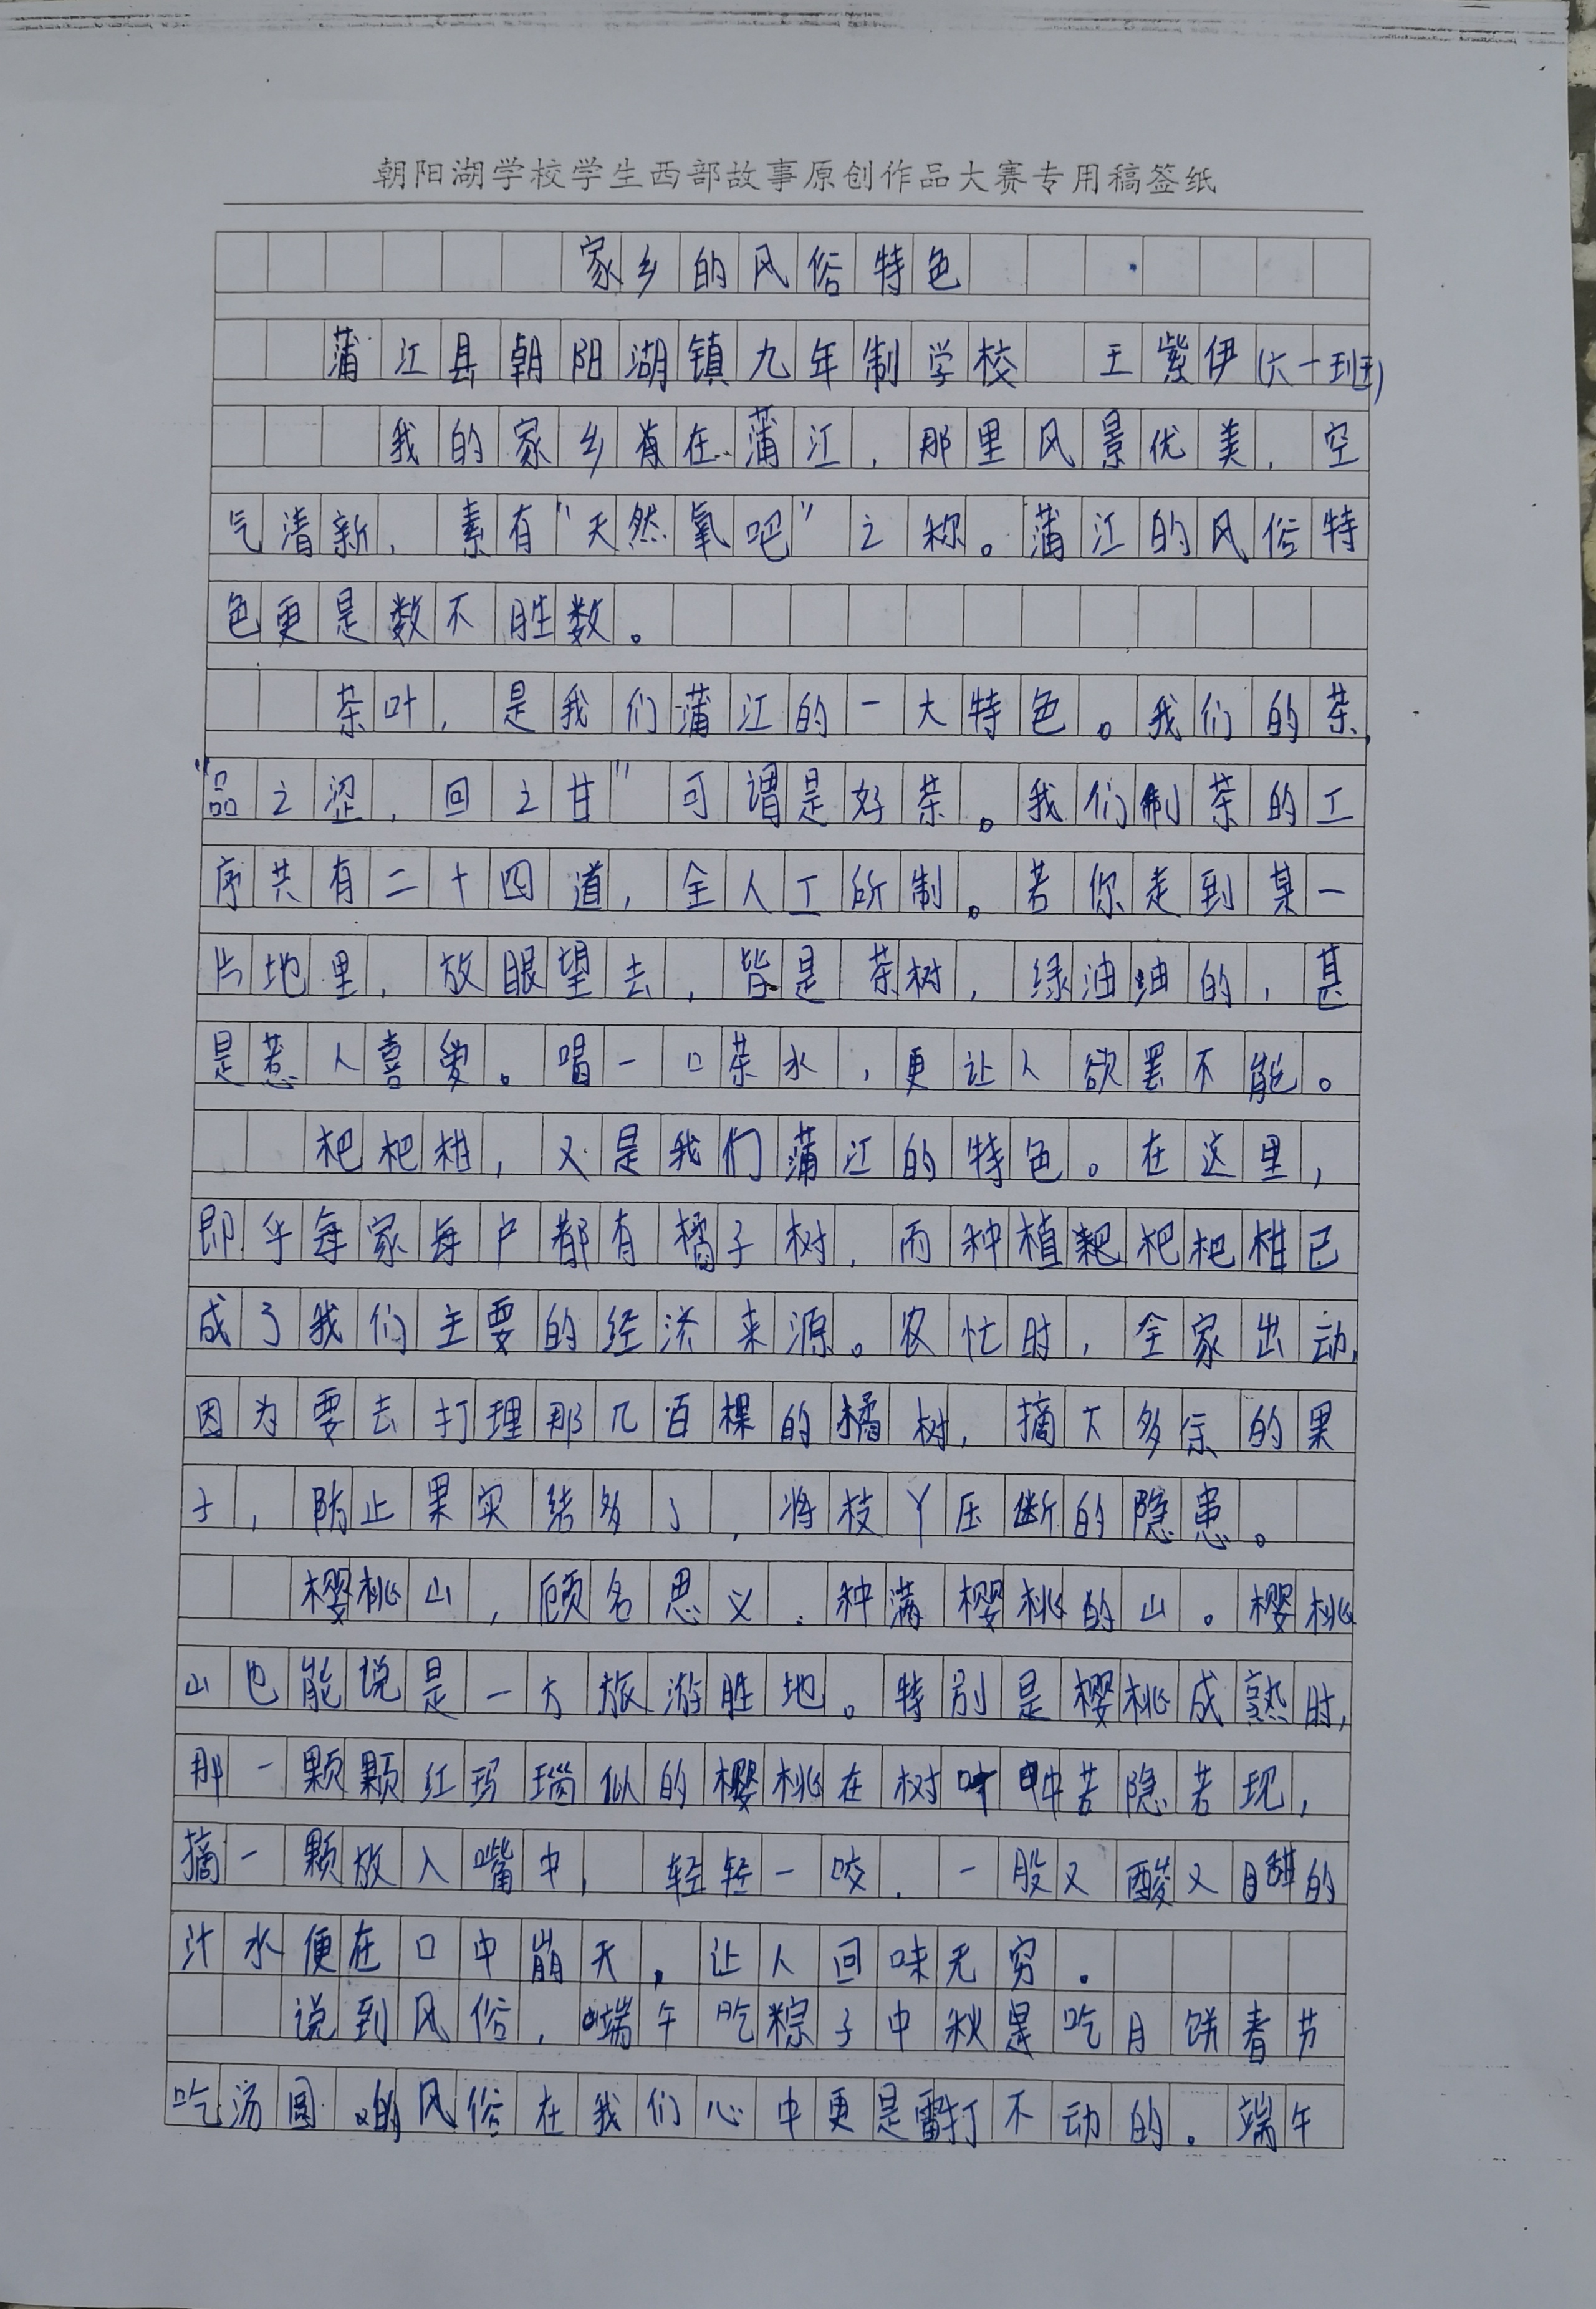 朝阳湖学校学生西部故事原创作品大赛专用稿签纸
家乡的风俗特色
蒲江县朝阳湖镇九年制学校 王紫伊(六一班)
我的家乡有在蒲江,那里风景优美,空
气清新,素有“天然氧吧”之称。蒲江的风俗特
色更是数不胜数。
茶叶,是我们蒲江的一大特色。我们的茶,
“品之涩,回之甘”可谓是好茶。我们制茶的工
序共有二十四道,全人工所制。若你走到某一
片地里,放眼望去,皆是茶树,绿油油的,甚
是惹人喜爱。喝一口茶水,更让人欲罢不能。
杷杷柑,又是我们蒲江的特色。在这里,
即乎每家每户都有橘子树,而种植粑杷杷柑已
成了我们主要的经济来源。农忙时,全家出动,
因为要去打理那几百棵的橘树,摘下多余的果
子,防止果实结多了,将枝丫压断的隐患。
樱桃山,顾名思义,种满樱桃的山。樱桃
山也能说是一方旅游胜地。特别是樱桃成熟时,
那一颗颗红玛瑙似的樱桃在树叶中若隐若现,
摘一颗放入嘴中,轻轻一咬,一股又酸又甜的
汁水便在口中崩天,让人回味无穷.
说到风俗,端午吃粽子中秋是吃月饼春节
吃汤圆 的风俗在我们心中更是雷打不动的。端午